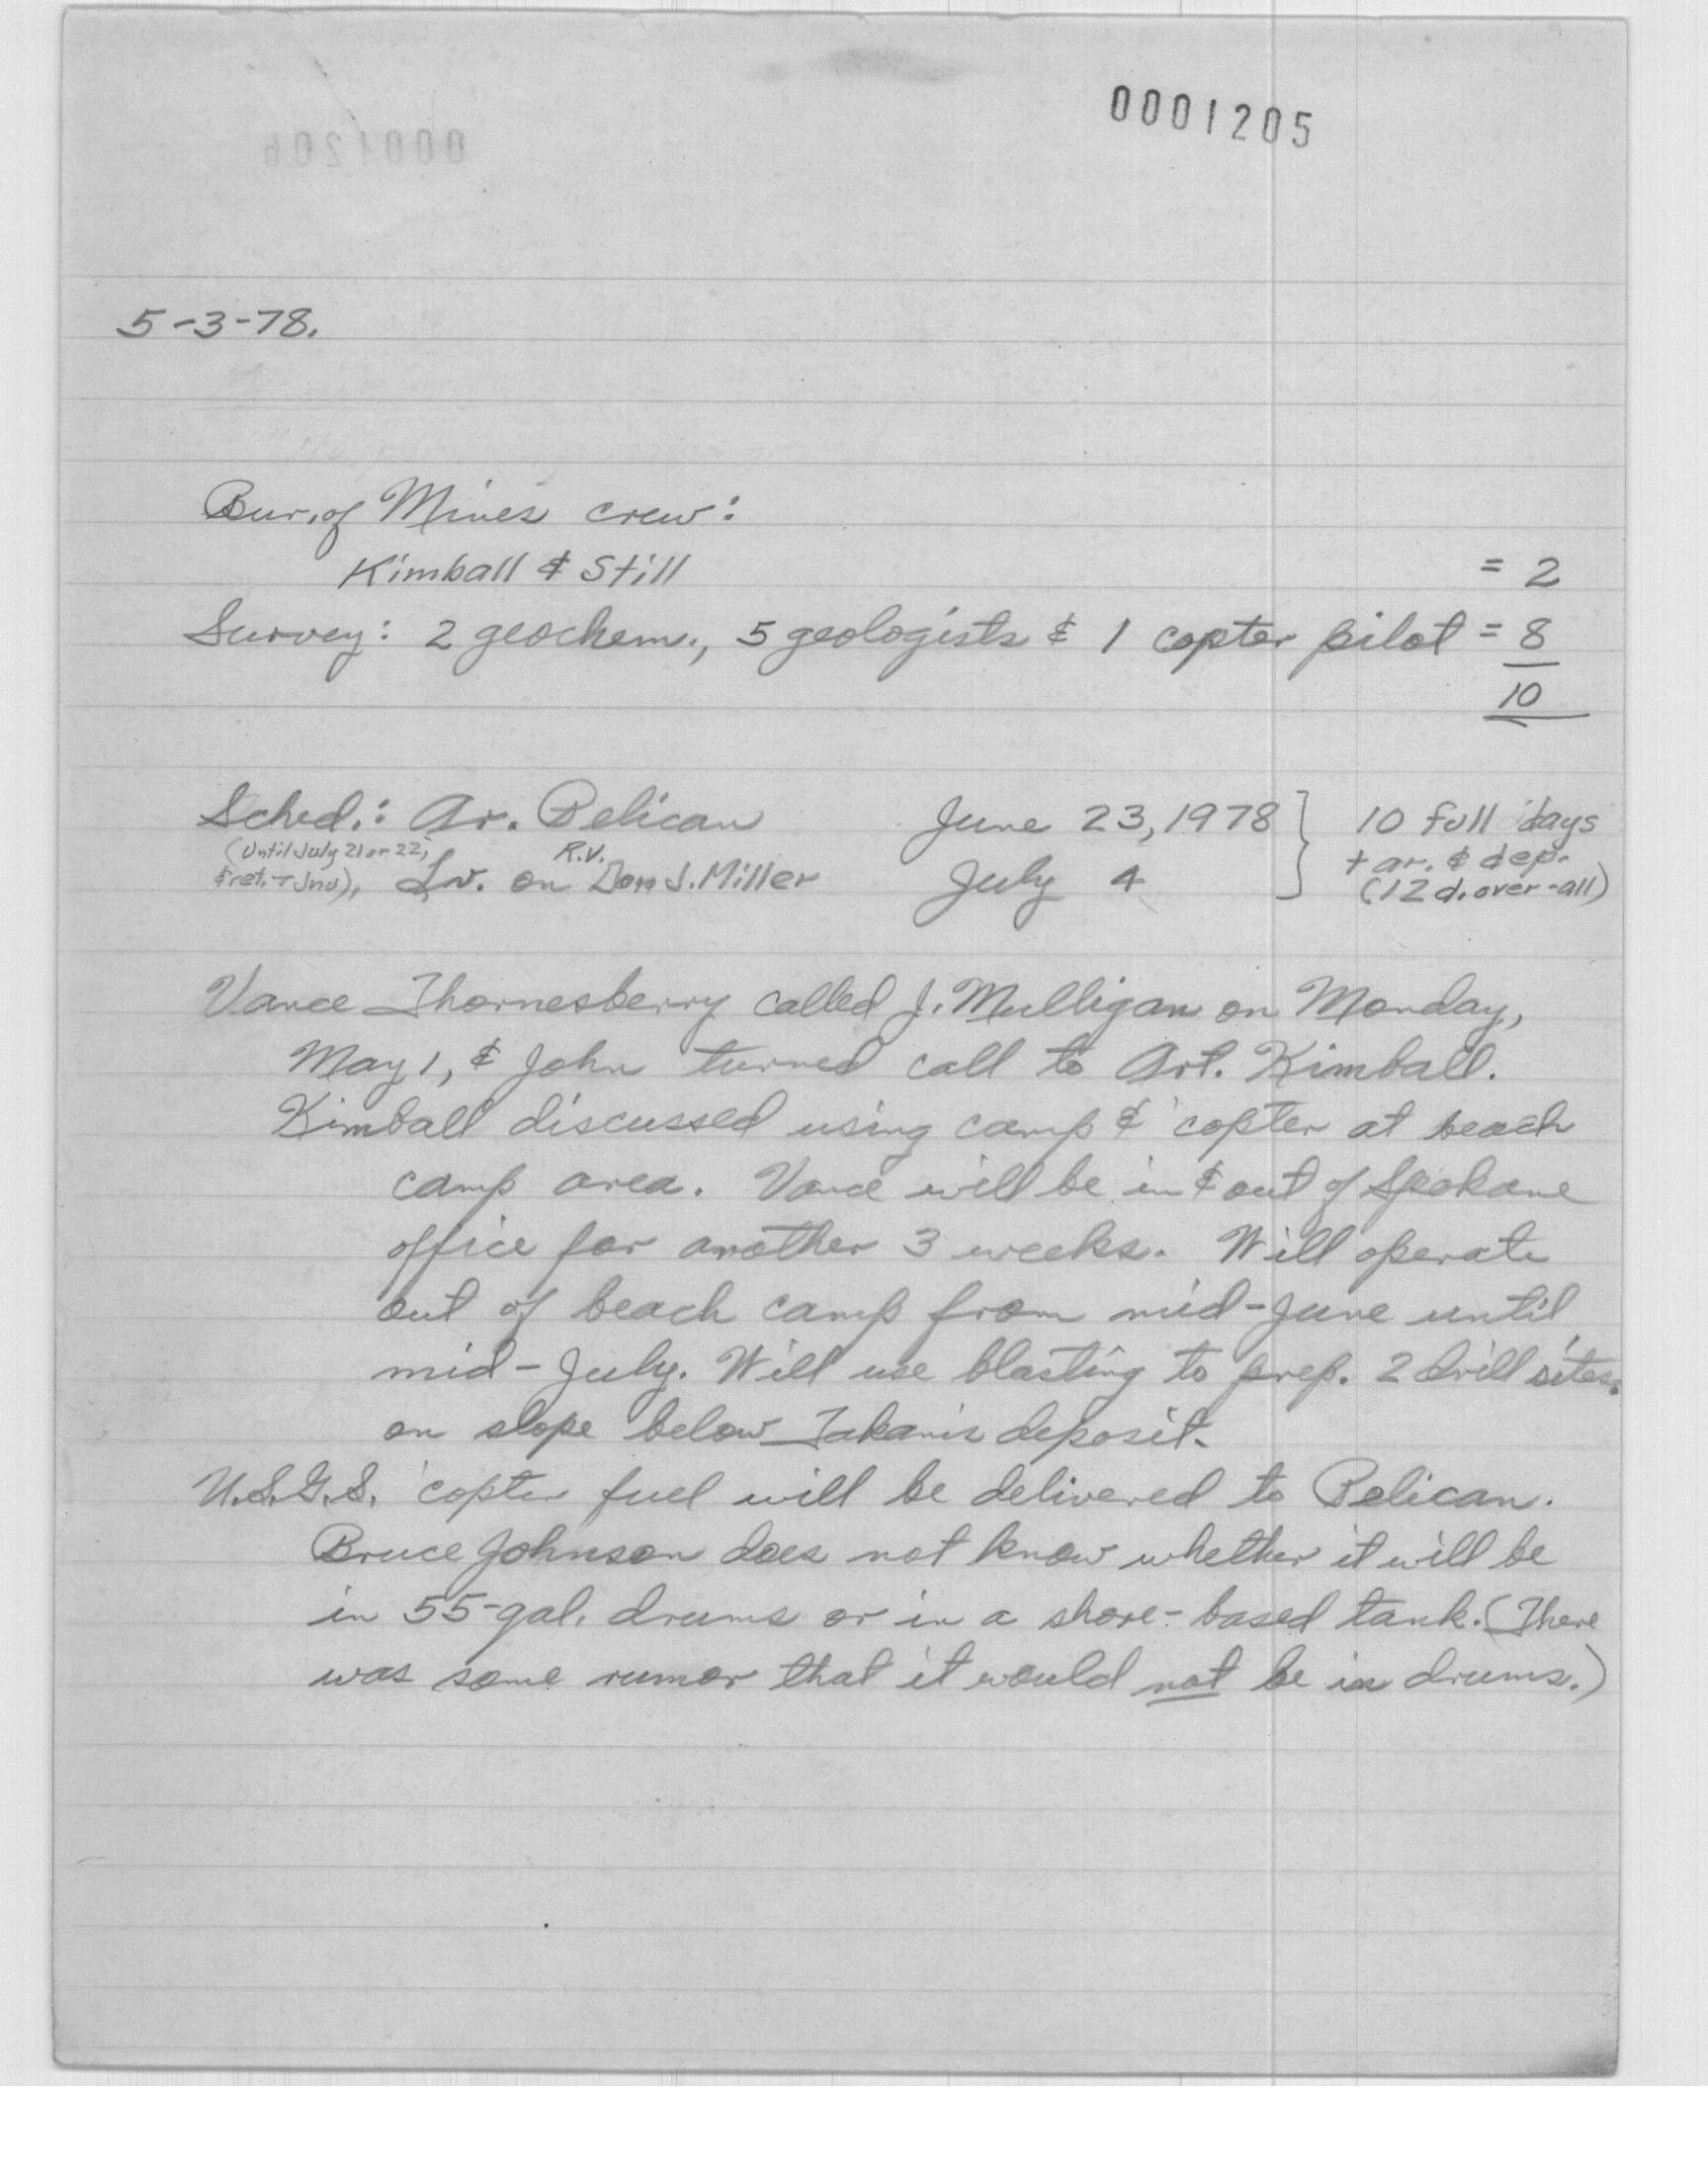 0001205
5-3-78.
Bur. of Mines crew:
Kimball & Still = 2
Survey: 2 geochem., 5 geologists & 1 copter pilot = 8
10
Sched.: Ar. Pelican June 23, 1978 } 10 full days
(Until July 21 or 22, R.V. + ar. & dep.
& ret. Jnu), Lv. on Don J. Miller July 4 (12 d. over-all)
Vance Thornesberry called J. Mulligan on Monday,
May 1, & John turned call to Art. Kimball.
Kimball discussed using camp & 'copter at beach
camp area. Vance will be in & out of Spokane
office for another 3 weeks. Will operate
out of beach camp from mid-June until
mid-July. Will use blasting to prep. 2 drill sites.
on slope below Takanis deposit.
U.S.G.S. 'copter fuel will be delivered to Pelican.
Bruce Johnson does not know whether it will be
in 55-gal. drums or in a shore-based tank. (There
was some rumor that it would not be in drums.)